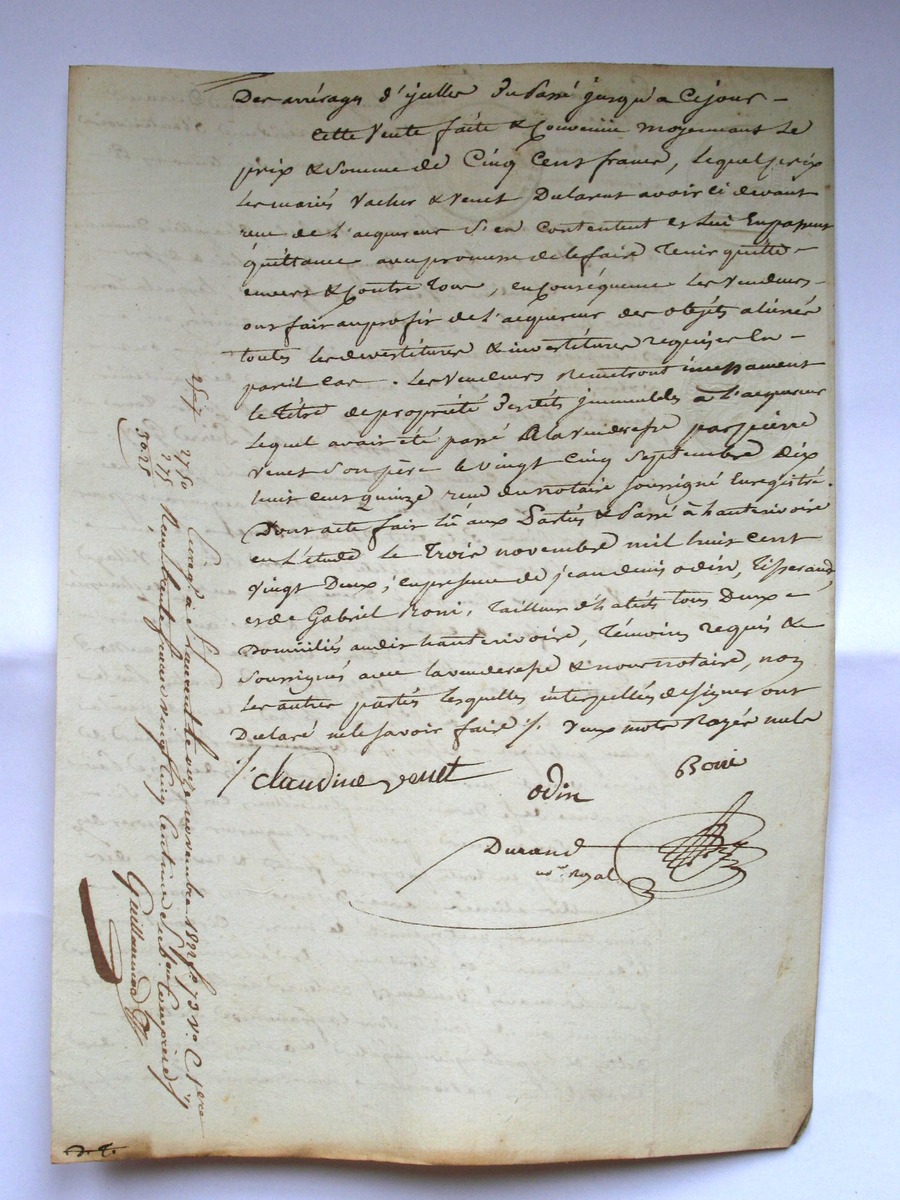 Des arrérages d'ycelles du Passé jusqu'a Cejour –
Cette Vente faite & Convenue moyennant Le
prix & Somme de Cinq Cent francs, Lequel prix
Les mariés Vacher & Venet Déclarent avoir ci devant
reçu de L'acquereur S'en Contentent & Lui En passent
Quittance avec promesse de le faire Tenir quitte –
envers & Contre Tous, en Conséquence Les Vendeurs
ont fait au profit de L'acquereur des objets aliénés
toutes les devestitures & investitures requises En –
pareil Cas. Les Vendeurs Remettront incessament
le titre de propriété Desdits immeubles à L'acquereur
Lequel avait été passé à la Venderesse par pierre
Venet Son père le vingt Cinq Septembre Dix
huit Cent quinze reçu du notaire Soussigné Enregistré.
Dont acte fait Lû aux Parties & Passé à hauterivoire
en L'étude le Trois novembre mil huit Cent
Vingt Deux, en présence de jean denis odin, Tisserand
et de Gabriel Boni, Tailleur d'habits tous Deux –
Domiciliés audit hauterivoire, Témoins requis &
Soussignés avec la venderesse & nous notaire, non
Les autres parties lesquelles interpellées de signer ont
Déclaré ne le Savoir faire /. Deux mots Rayés nuls
/. claudine venet
odin
Boni
Durand
no.re Royal
2750
275
3025
Enreg.é à S.t Laurent le onze novembre 1822 f.o 73 V.o C. 1.ere
Reçu trente francs vingt Cinq Centimes
Guillermod